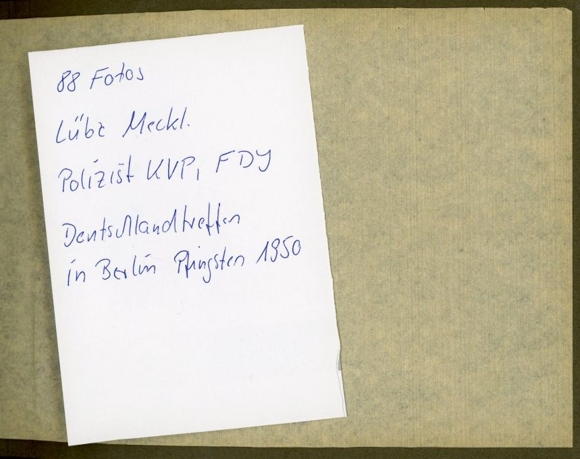 88 Fotos
Lübz Meckl.
Polizist KVP, FDJ
Deutschlandtreffen
in Berlin Pfingsten 1950